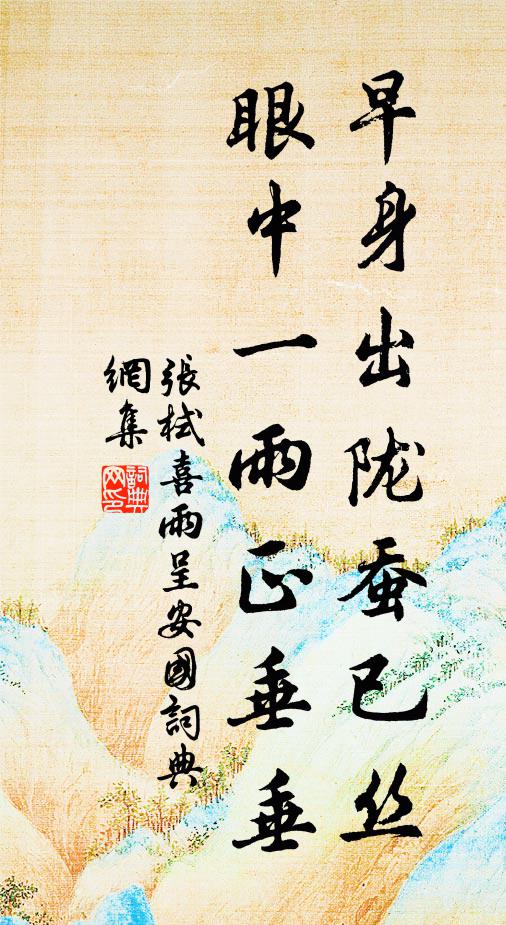 早身出陇蚕已丝
眼中一雨正垂垂
張栻喜雨呈安國詞典
網集
詞典
网印